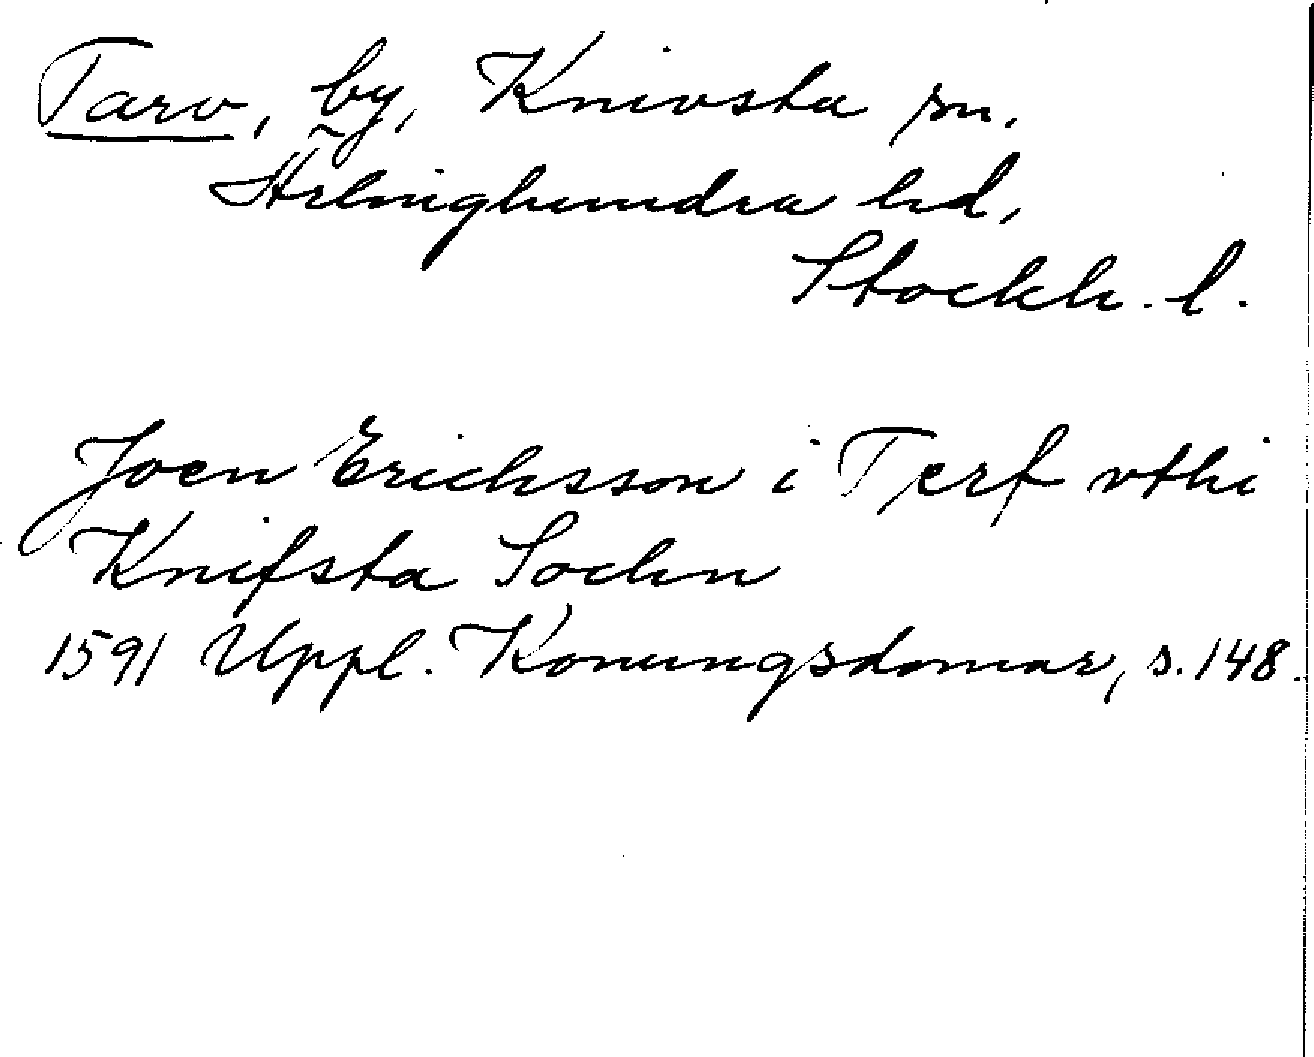 Tarv, by, Knivsta sn.
Ärlinghundra hd,
Stockh. l.
Joen Erichsson i Terf vthi
Knifsta Sochn
1591 Uppl. Konungsdomar, s. 148.